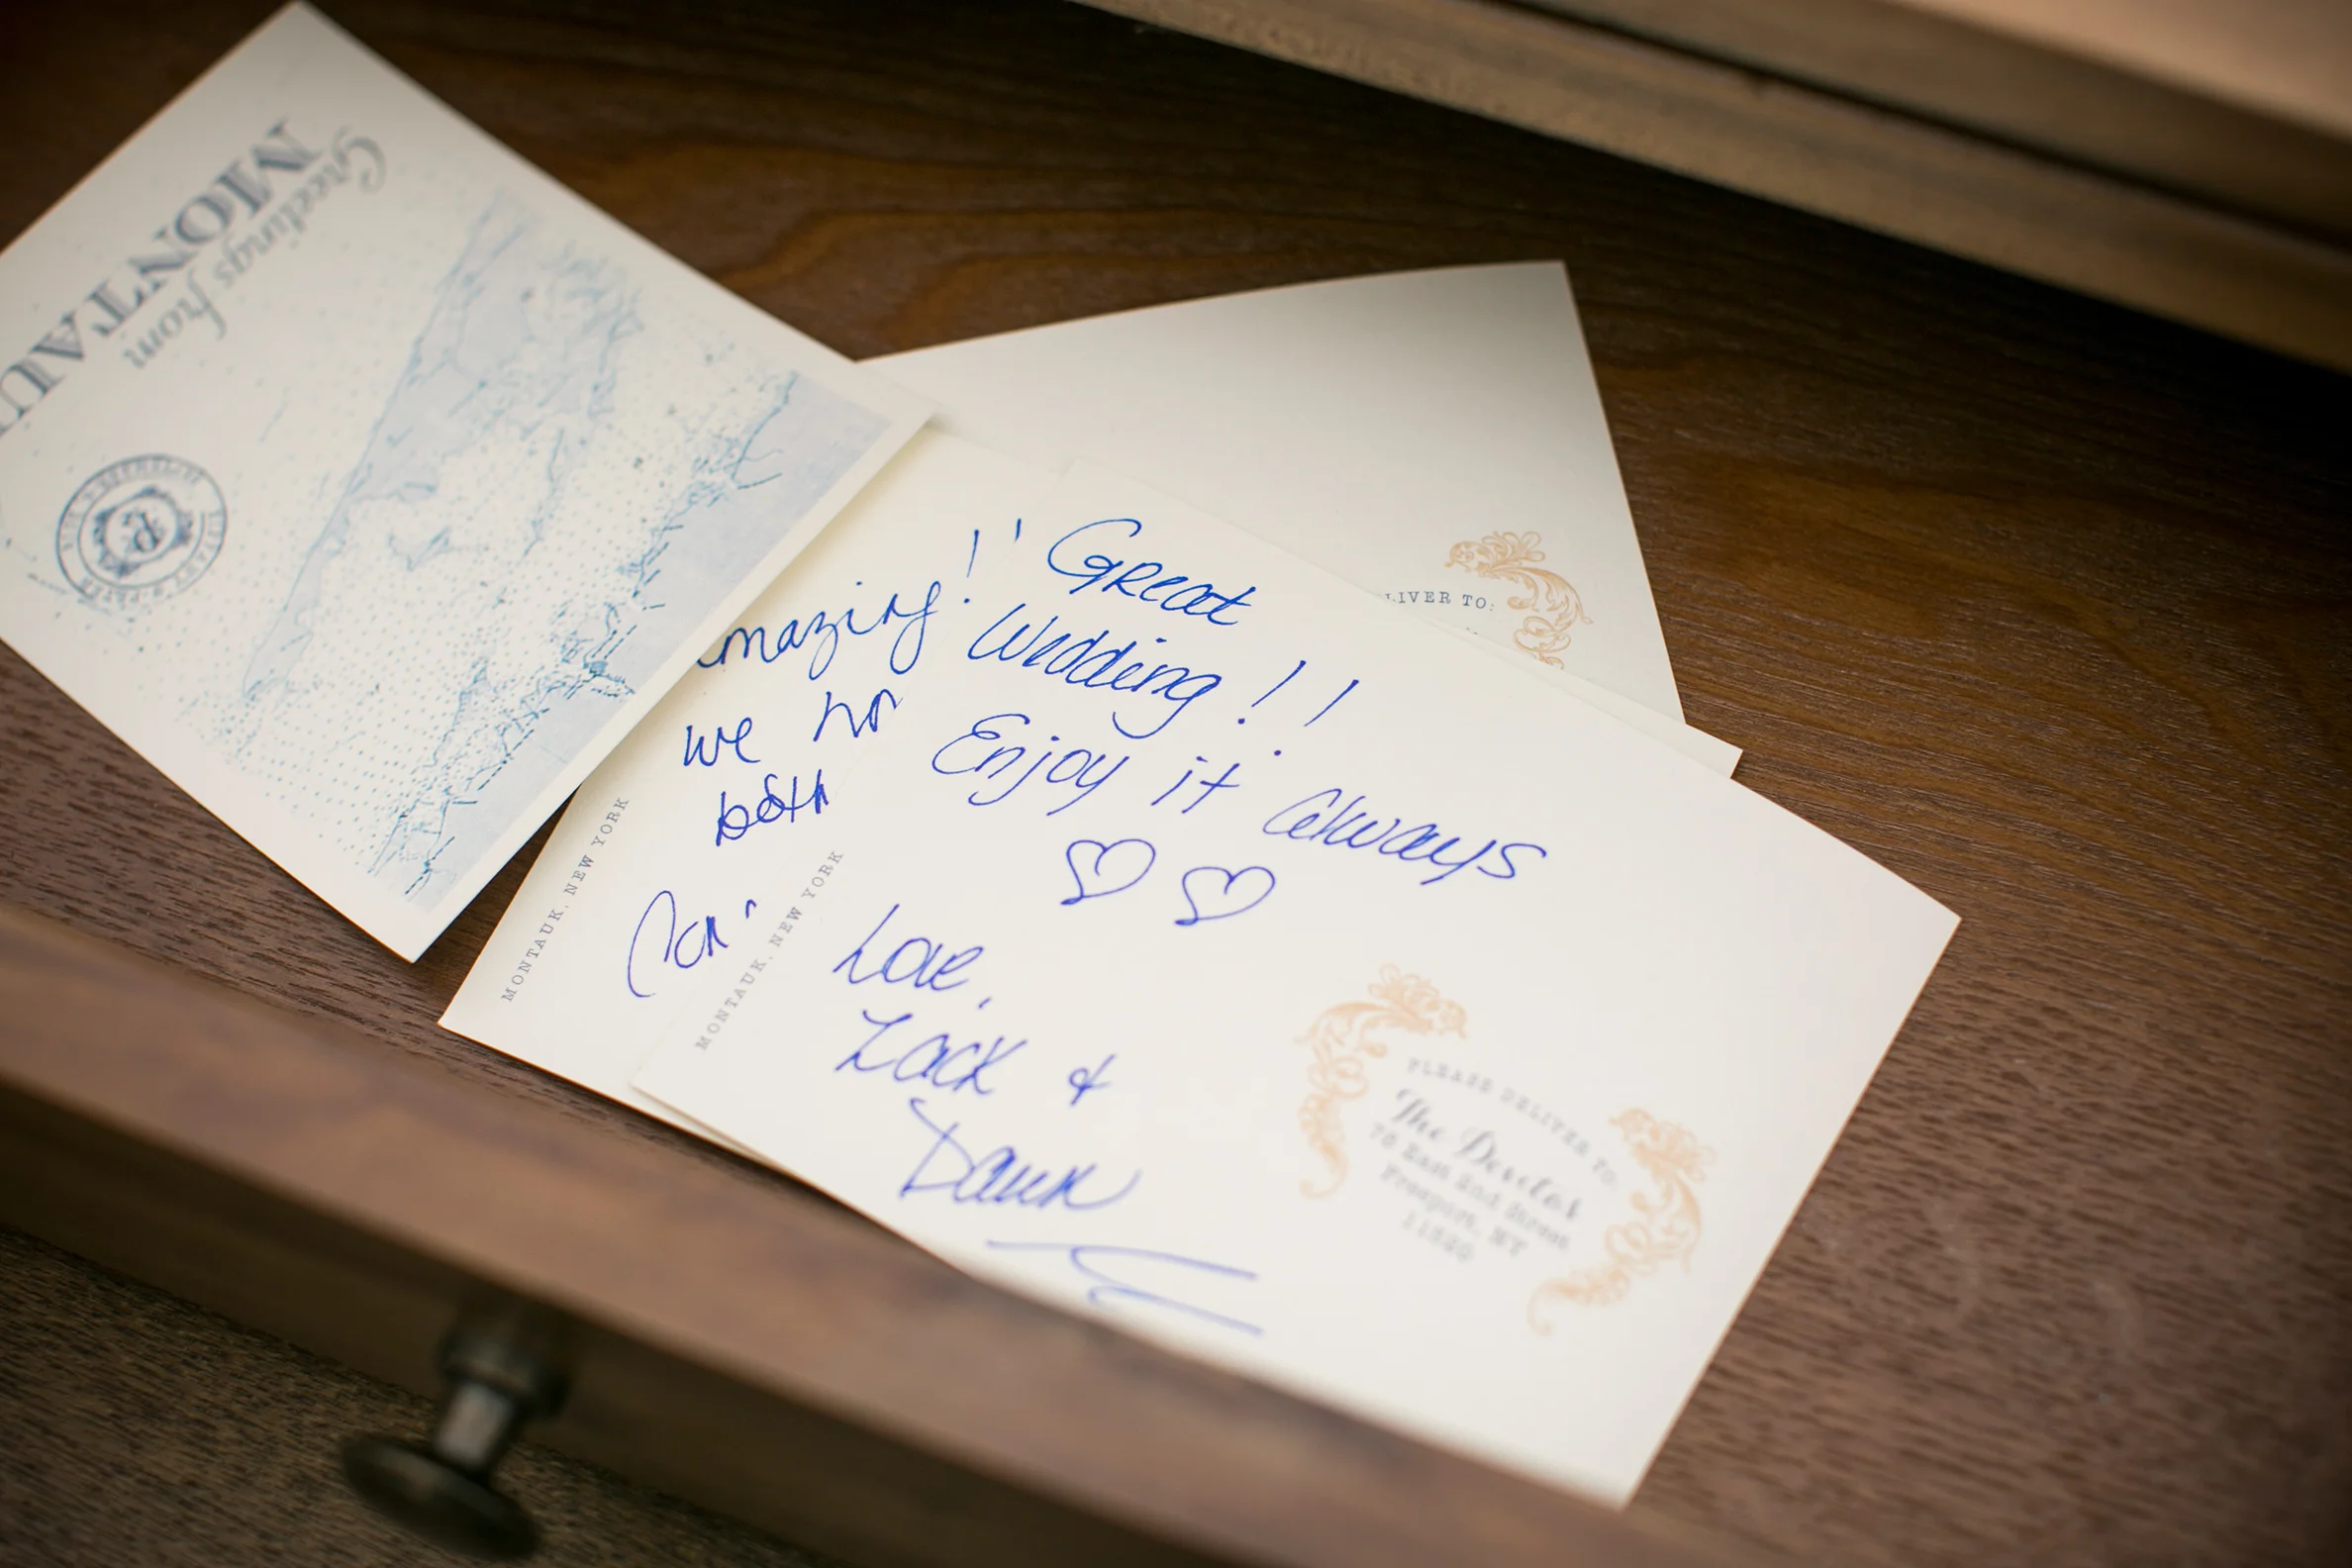 Greetings from
MONTAU
Great
Wedding!!
Enjoy it always
♡♡
Love,
Zack &
Dawn
MONTAUK, NEW YORK
PLEASE DELIVER TO:
The
76 East 2nd Street
Freeport, NY
11520
mazing!!
we ho
both
MONTAUK, NEW YORK
LIVER TO: